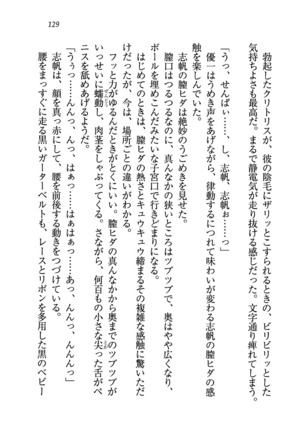 129
勃起したクリトリスが、彼の陰毛にザリッとこすられるときの、ビリビリッとした
気持ちよさも最高だ。まるで静電気が走り抜ける感じだった。文字通り痺れてしまう。
「うっ、せんぱい……し、志帆、志帆ぉ……っ」
優一はうめき声をあげながら、律動するにつれて味わいが変わる志帆の膣ヒダの感
触を楽しんでいた。
志帆の膣ヒダは絶妙のうごめきを見せた。
膣口はつるつるなのに、真んなかの狭いところはツブツブで、奥はやや広くなり、
ボールを埋めこんだみたいな子宮口で行きどまりになる。
はじめてのときは、膣ヒダの熱さとキュウキュウ締まるその複雑な感触に驚いただ
けだったが、今は、場所ごとの違いがわかる。
フッと力がゆるんだときがとくにいい。膣ヒダの真んなかから奥までのツブツブが
いっせいに蠕動し、肉茎をしゃくりあげる。さながら、何百もの小さな尖った舌がペ
ニスを舐めあげるようだ。
「うぅっ……んんっ、んっ、はぁっ……はぁぁっ……あっ、んんっ」
志帆は、顔を真っ赤にして、腰を前後する動きをつづけている。
腰をまっすぐに走る黒いガーターベルトも、レースとリボンを多用した黒のベビー